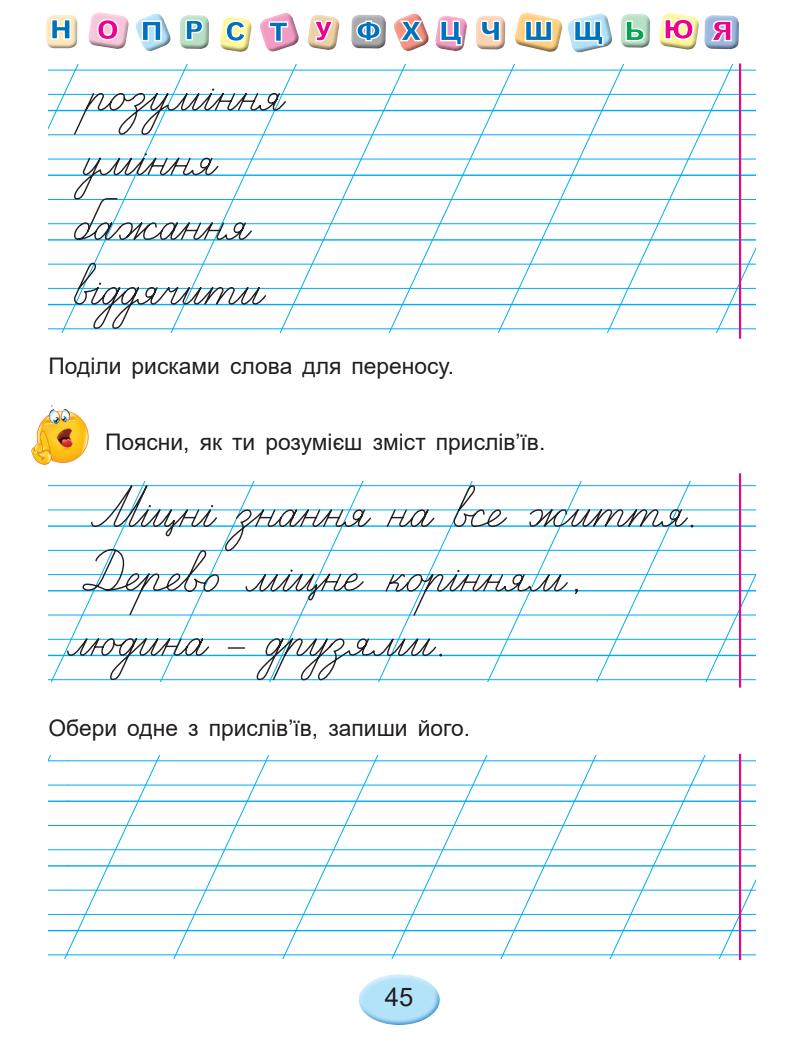 Н О П Р С Т У Ф Х Ц Ч Ш Щ Ь Ю Я
розуміння
уміння
бажання
віддячити
Поділи рисками слова для переносу.
Поясни, як ти розумієш зміст прислів’їв.
Міцні знання на все життя.
Дерево міцне корінням,
людина – друзями.
Обери одне з прислів’їв, запиши його.
45